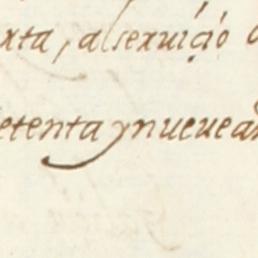 xta, al seruiçio
etenta y nueue a